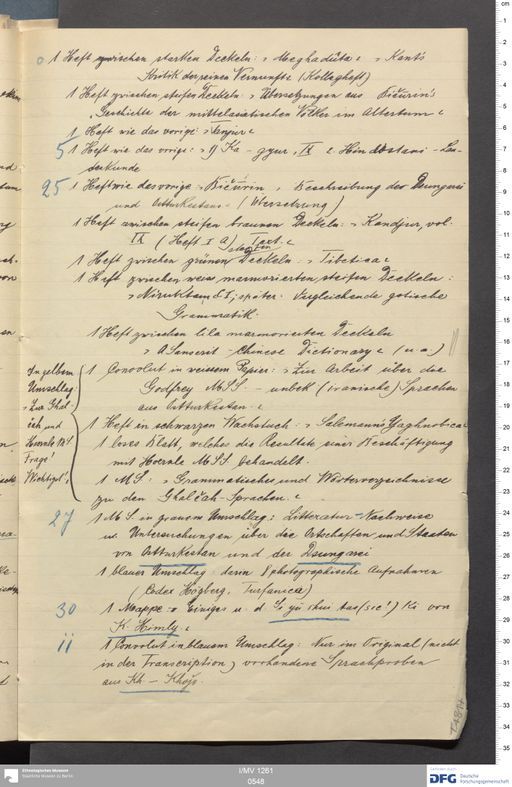 1 Heft zwischen starken Deckeln: „Meghadūta“ „Kants
Kritik der reinen Vernunft“ (Kollegheft)
1 Heft zwischen steifen Deckeln: „Übersetzungen aus Bičurin's
„Geschichte der mittelasiatischen Völker im Altertum“
1 Heft wie das vorige:
5 1 Heft wie das vorige: „1) Ka-gyur, IX“ Hindostani-Lan-
deskunde
25 1 Heft wie das vorige „Bičurin, Beschreibung der Dsungarei
und Ostturkestans- (Übersetzung)
1 Heft zwischen steifen braunen Deckeln: „Kandjur, vol.
IX (Heft I a) Text.“
1 Heft zwischen grünen steifen Deckeln: „Tibetica“
1 Heft zwischen weiss marmorierten steifen Deckeln:
später: Vergleichende gotische
Grammatik.
1 Heft zwischen lila marmorierten Deckeln
„A Sanscrit-Chinese Dictionary“ (u. a.)
In gelbem
Umschlag:
„Zur Ghal-
čah und
Hoernle MS.
Frage!
Wichtig!“
1 Convolut in weissem Papier: „Zur Arbeit über die
Godfrey MSS. - unbek. (iranische) Sprachen
aus Ostturkestan.“
1 Heft in schwarzem Wachstuch: „Salemann's Yaghnobica
1 loses Blatt, welches die Resultate einer Beschäftigung
mit Hoernle MSS. behandelt.
1 MS.: „Grammatisches und Wörterverzeichnisse
zu den Ghalčah-Sprachen.“
27 1 MS. in grauem Umschlag: Litteratur-Nachweise
u. Untersuchungen über die Ortschaften und Staaten
von Ostturkistan und der Dsungarei
1 blauer Umschlag: darin 8 photographische Aufnahmen
(Högberg, Turfanica)
30 1 Mappe: „Einiges u. d. Si yü shui tao (sic!) Ki von
K. Himly“
ii 1 Convolut in blauem Umschlag: Nur im Original (nicht
in der Transcription) vorhandene Sprachproben
aus Kh - Khojo.
I/MV 1261
0548
Ethnologisches Museum
Staatliche Museen zu Berlin
DFG Deutsche
Forschungsgemeinschaft